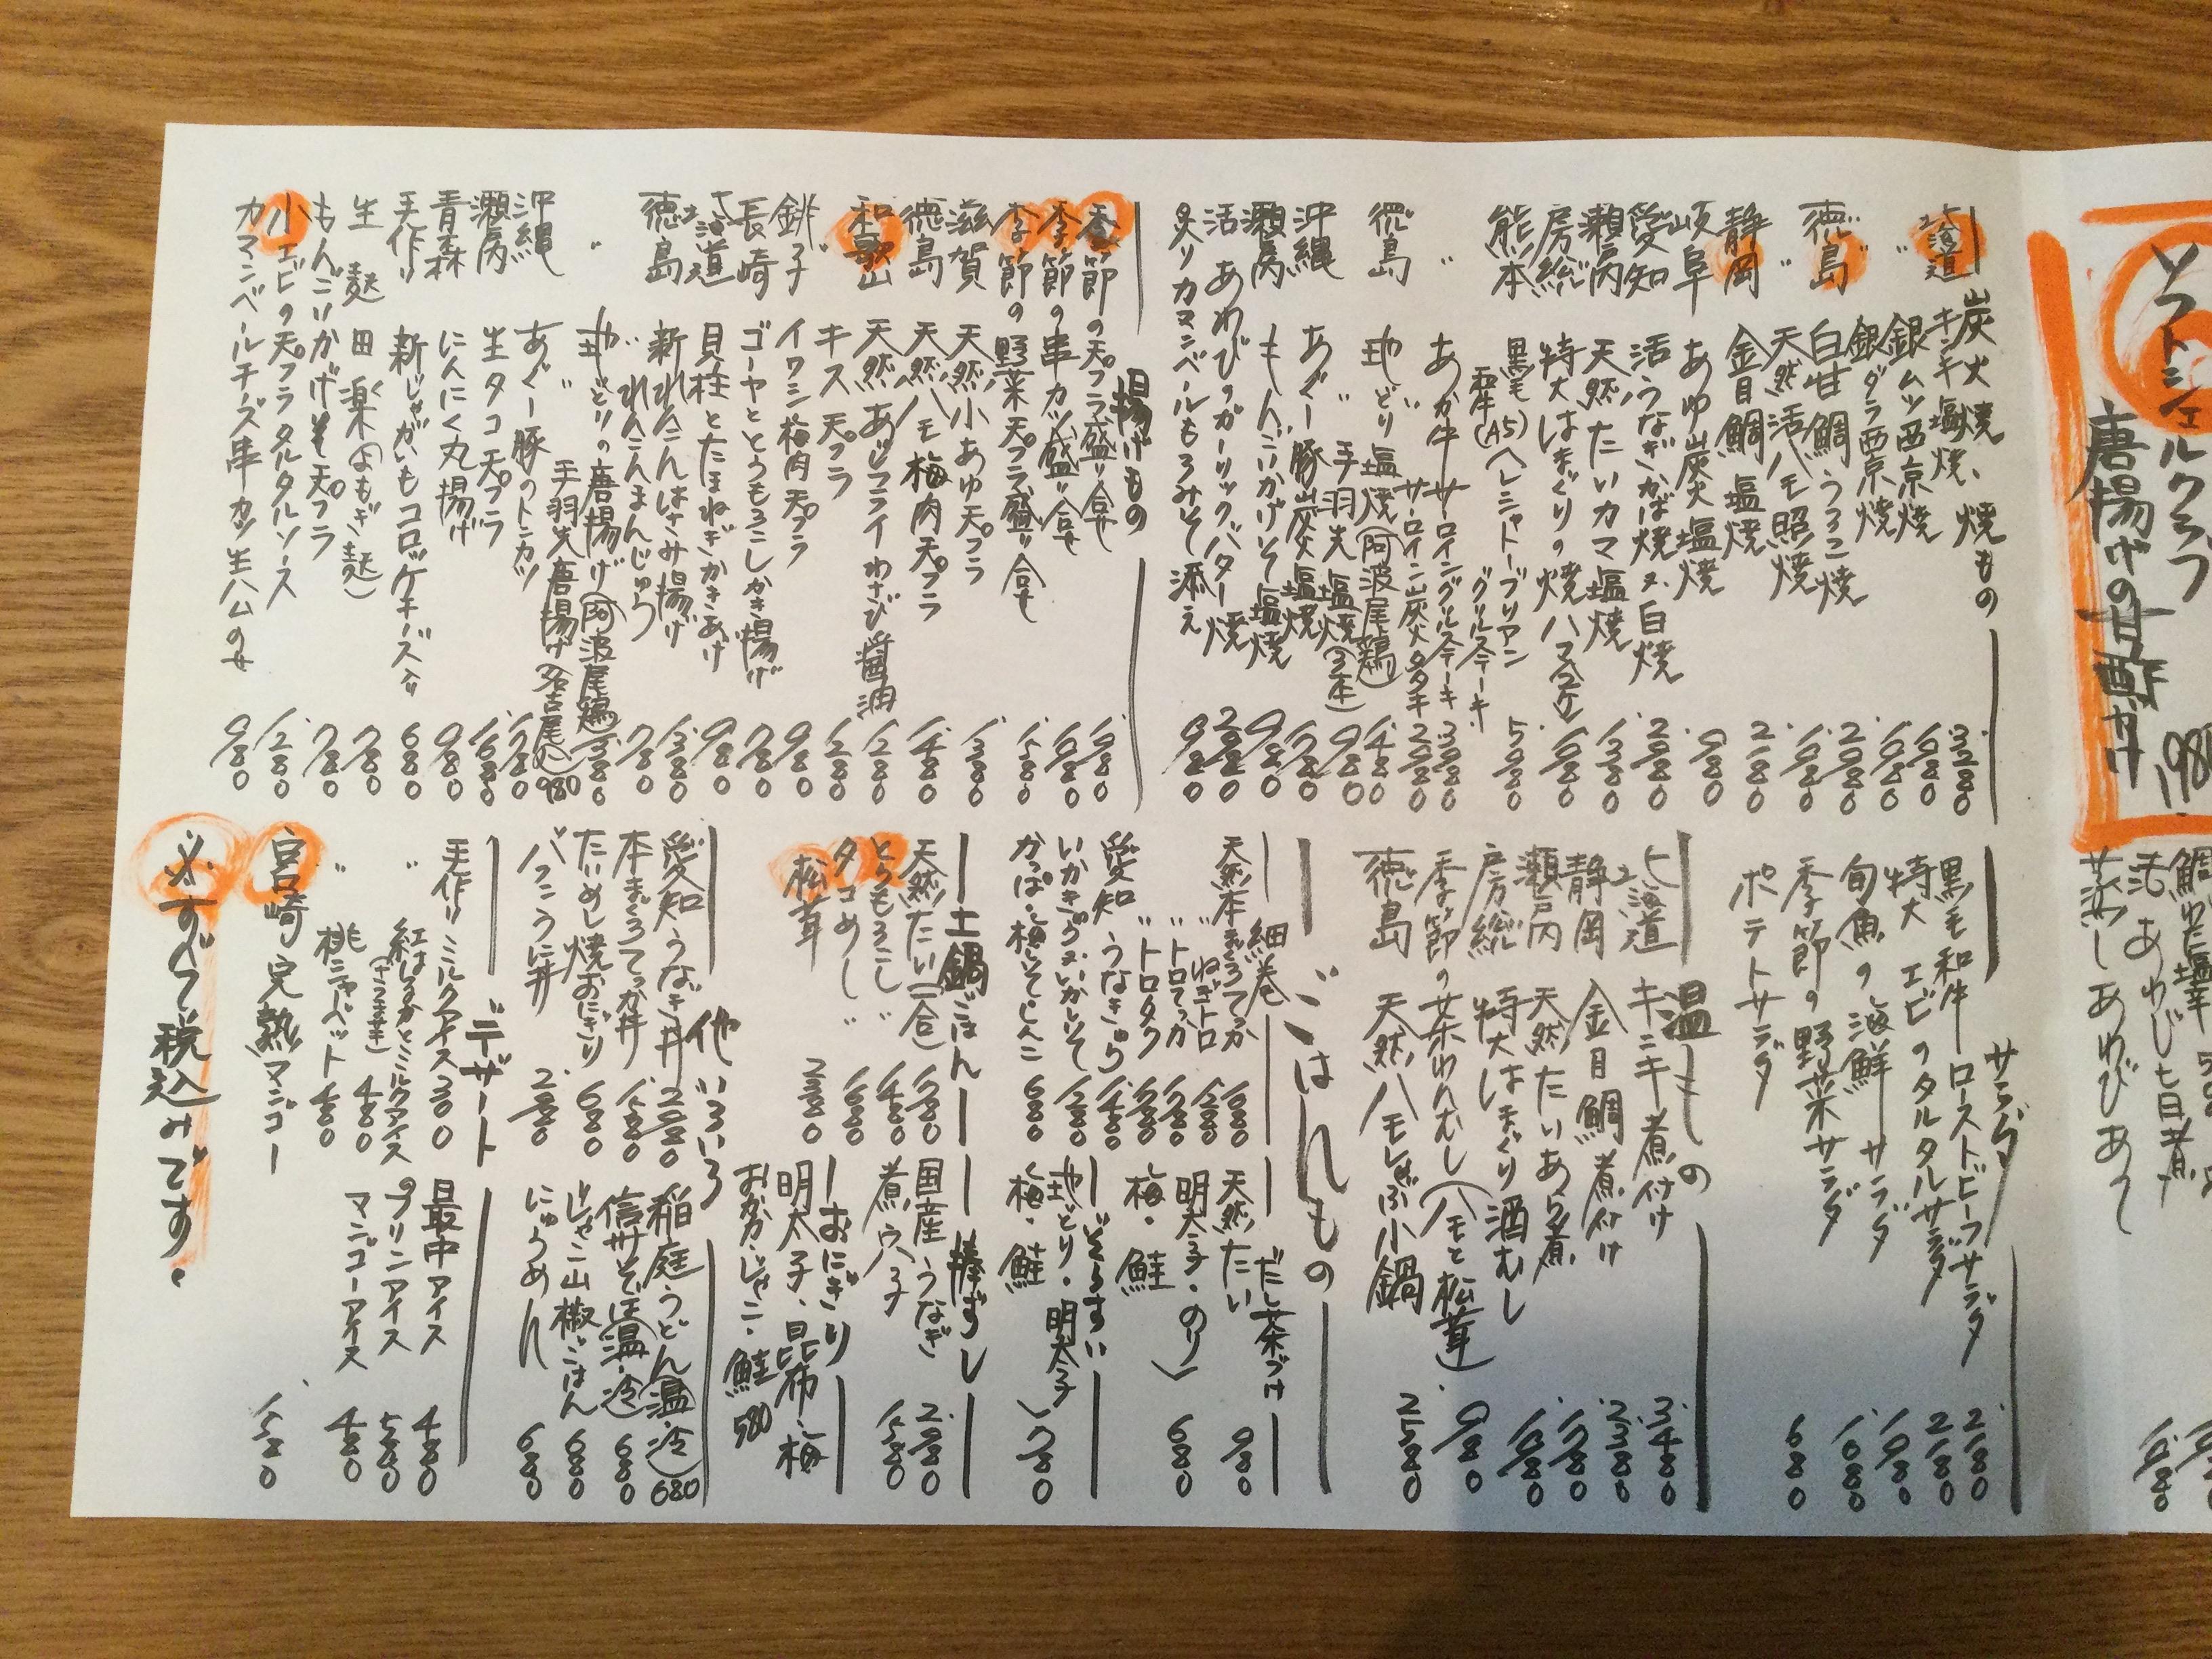 ソフトシェルクラブ
唐揚げの甘酢がけ
活あわび旨煮
蒸しあわび
炭火焼、焼もの
北海道 キンキ塩焼 3280
〃 銀ムツ西京焼 1980
銀ダラ西京焼 1980
徳島 白甘鯛うろこ焼 2980
〃 天然活ハモ照焼 1980
静岡 金目鯛塩焼 2180
岐阜 あゆ炭火塩焼 980
愛知 活うなぎかば焼 又、白焼 2980
瀬戸内 天然たいカマ塩焼 1380
房総 特大はまぐりの焼ハマ 1980
熊本 黒毛和牛(A5)ヘレシャトーブリアングリルステーキ 5980
〃 あか牛サーロイングリルステーキ 3980
サーロイン炭火タタキ 2980
徳島 地どり塩焼(阿波尾鶏) 1480
〃 手羽先塩焼(3本) 980
沖縄 あぐー豚炭火塩焼 1780
瀬戸内 もんごいかげそ塩焼 980
活あわびのガーリックバター焼 2980
炙りカマンベールもろみそ添え 980
揚げもの
季節の天プラ盛り合せ 1980
季節の串カツ盛り合せ 1980
季節の野菜天プラ盛り合せ 1580
滋賀 天然小あゆ天プラ 1380
徳島 天然ハモ梅肉天プラ 1480
和歌山 天然あじフライわさび醤油 1280
キス天プラ 1280
銚子 イワシ梅肉天プラ 980
長崎 ゴーヤととうもろこしかき揚げ 780
北海道 貝柱とたまねぎかきあげ 980
徳島 新れんこんはさみ揚げ 1380
〃 れんこんまんじゅう 780
〃 地どりの唐揚げ(阿波尾鶏) 1380
〃 手羽先唐揚げ 980
沖縄 あぐー豚のトンカツ 1780
瀬戸内 生タコ天プラ 1680
青森 にんにく丸揚げ 980
手作り 新じゃがいもコロッケチーズ入り 680
生麩田楽(よもぎ麩) 780
もんごいかげそ天プラ 780
小エビの天プラタルタルソース 1280
カマンベールチーズ串カツ生ハムのせ 980
サラダ
黒毛和牛ローストビーフサラダ 2180
特大エビのタルタルサラダ 2180
旬魚の海鮮サラダ 1980
季節の野菜サラダ 1080
ポテトサラダ 680
温もの
北海道 キンキ煮付け 3480
静岡 金目鯛煮付け 2380
瀬戸内 天然たいあら煮 1780
房総 特大はまぐり酒むし 1980
季節の茶わんむし(ハモと松茸) 980
徳島 天然ハモしゃぶ小鍋 2580
ごはんもの
細巻
天然本まぐろてっか 1680
〃 ねぎトロ 1280
〃 トロてっか 1780
〃 トロタク 1780
愛知 うなきゅう 1480
いかきゅう又いかしそ 1280
かっぱ・梅しそしんこ 680
だし茶づけ
天然たい 980
明太子・のり
梅・鮭 680
ぞうすい
地どり・明太子
梅・鮭 780
土鍋ごはん
天然たい(一合) 1780
とうもろこし〃 1480
タコめし〃 1680
松茸 2980
棒ずし
国産うなぎ 2980
煮穴子 1580
おにぎり
明太子・昆布・梅
おかか・じゃこ・鮭 580
他いろいろ
愛知うなぎ丼 2980
本まぐろてっか丼 1580
たいめし焼おにぎり 680
バフンうに丼 2980
稲庭うどん(温・冷) 680
信州そば(温・冷) 680
じゃこ山椒ごはん 680
にゅうめん 680
デザート
手作りミルクアイス 300
〃 紅はるか(さつま芋)とミルクアイス 480
〃 桃シャーベット 480
最中アイス 480
プリンアイス 580
マンゴーアイス 480
宮崎 完熟マンゴー 1580
※すべて税込みです。